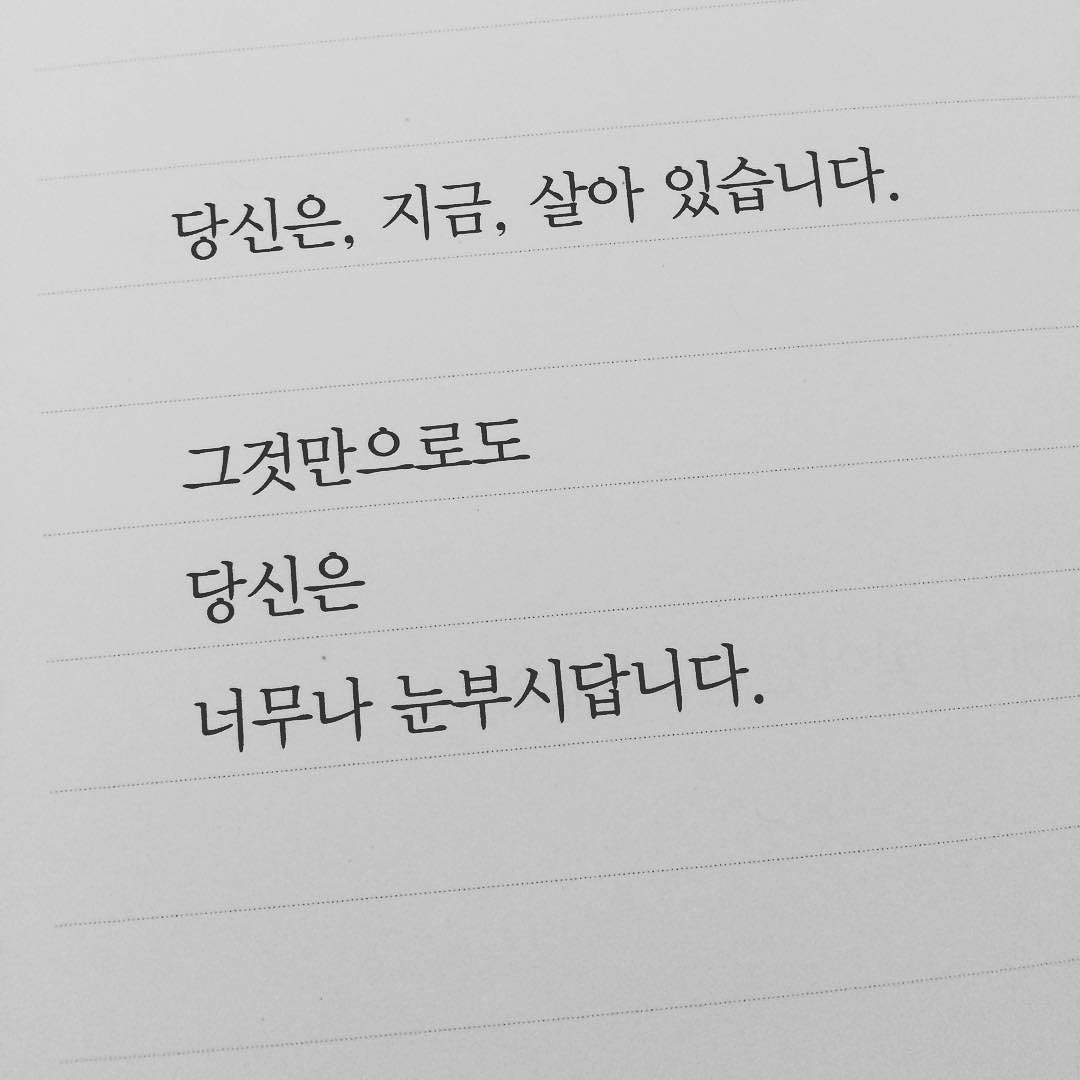 당신은, 지금, 살아 있습니다.
그것만으로도
당신은
너무나 눈부시답니다.